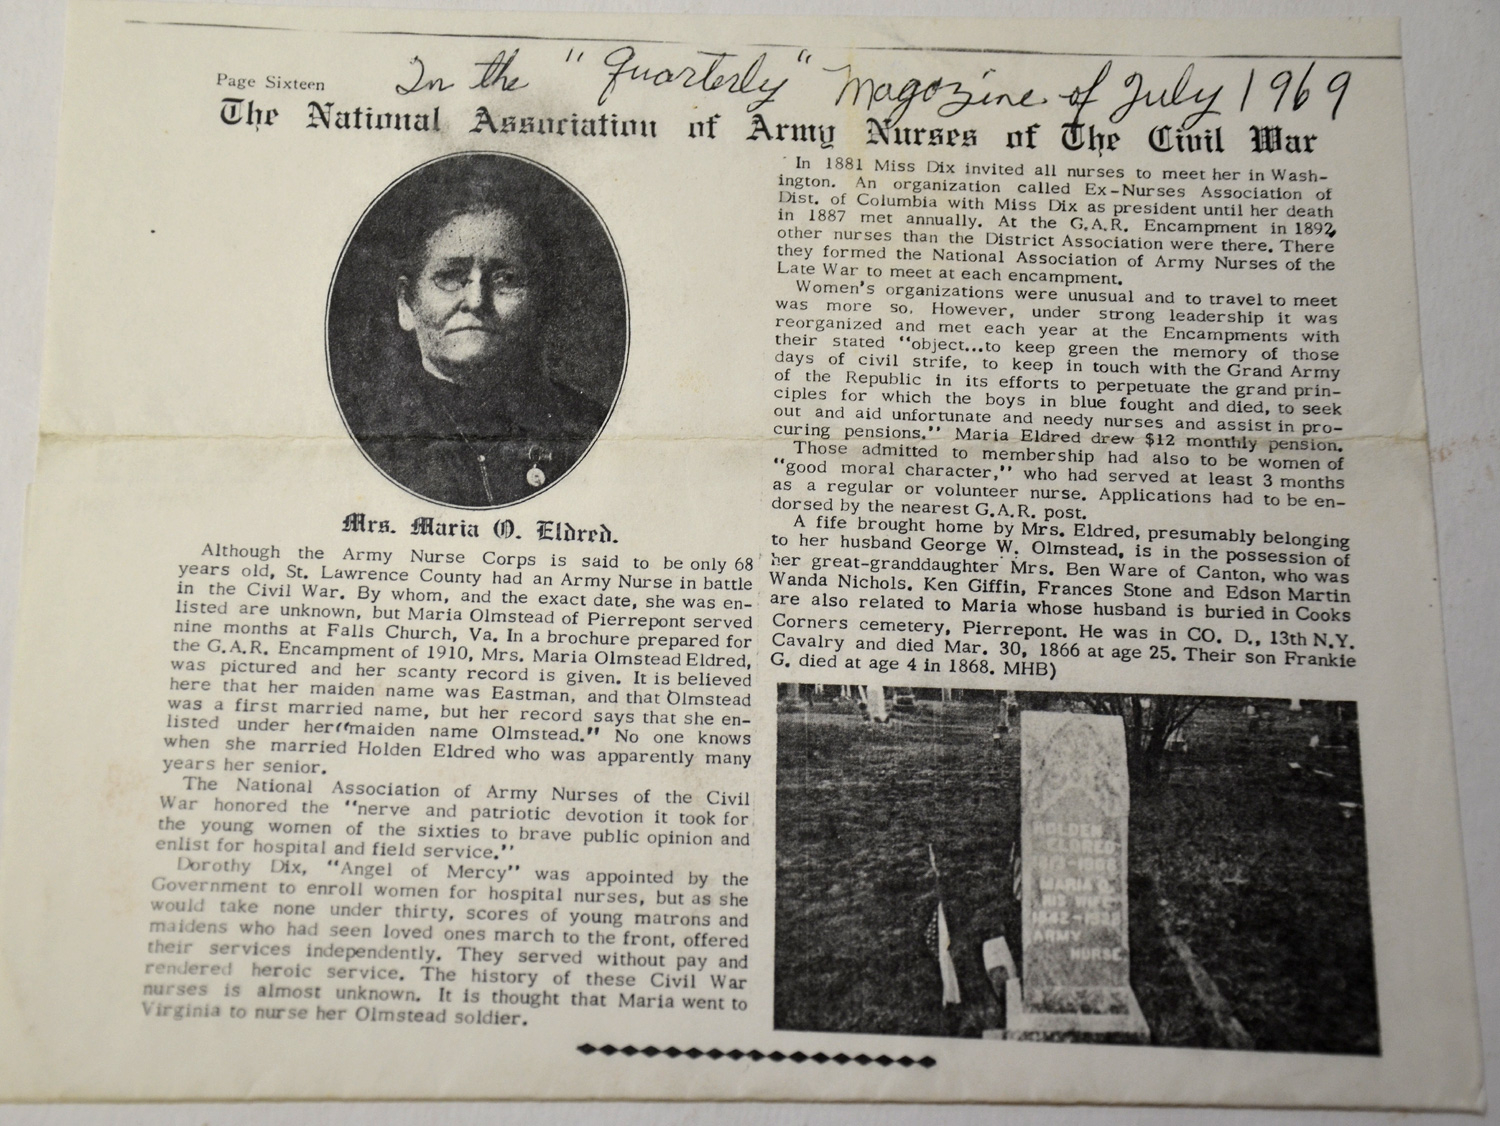 Page Sixteen
In the "Quarterly" Magazine of July 1969
The National Association of Army Nurses of The Civil War
Mrs. Maria O. Eldred.
Although the Army Nurse Corps is said to be only 68
years old, St. Lawrence County had an Army Nurse in battle
in the Civil War. By whom, and the exact date, she was en-
listed are unknown, but Maria Olmstead of Pierrepont served
nine months at Falls Church, Va. In a brochure prepared for
the G.A.R. Encampment of 1910, Mrs. Maria Olmstead Eldred,
was pictured and her scanty record is given. It is believed
here that her maiden name was Eastman, and that Olmstead
was a first married name, but her record says that she en-
listed under her "maiden name Olmstead." No one knows
when she married Holden Eldred who was apparently many
years her senior.
The National Association of Army Nurses of the Civil
War honored the "nerve and patriotic devotion it took for
the young women of the sixties to brave public opinion and
enlist for hospital and field service."
Dorothy Dix, "Angel of Mercy" was appointed by the
Government to enroll women for hospital nurses, but as she
would take none under thirty, scores of young matrons and
maidens who had seen loved ones march to the front, offered
their services independently. They served without pay and
rendered heroic service. The history of these Civil War
nurses is almost unknown. It is thought that Maria went to
Virginia to nurse her Olmstead soldier.
In 1881 Miss Dix invited all nurses to meet her in Wash-
ington. An organization called Ex-Nurses Association of
Dist. of Columbia with Miss Dix as president until her death
in 1887 met annually. At the G.A.R. Encampment in 1892,
other nurses than the District Association were there. There
they formed the National Association of Army Nurses of the
Late War to meet at each encampment.
Women's organizations were unusual and to travel to meet
was more so. However, under strong leadership it was
reorganized and met each year at the Encampments with
their stated "object...to keep green the memory of those
days of civil strife, to keep in touch with the Grand Army
of the Republic in its efforts to perpetuate the grand prin-
ciples for which the boys in blue fought and died, to seek
out and aid unfortunate and needy nurses and assist in pro-
curing pensions." Maria Eldred drew $12 monthly pension.
Those admitted to membership had also to be women of
"good moral character," who had served at least 3 months
as a regular or volunteer nurse. Applications had to be en-
dorsed by the nearest G.A.R. post.
A fife brought home by Mrs. Eldred, presumably belonging
to her husband George W. Olmstead, is in the possession of
her great-granddaughter Mrs. Ben Ware of Canton, who was
Wanda Nichols. Ken Giffin, Frances Stone and Edson Martin
are also related to Maria whose husband is buried in Cooks
Corners cemetery, Pierrepont. He was in CO. D., 13th N.Y.
Cavalry and died Mar. 30, 1866 at age 25. Their son Frankie
G. died at age 4 in 1868. MHB)
HOLDEN
ELDRED
MARIA O.
HIS WIFE
ARMY
NURSE